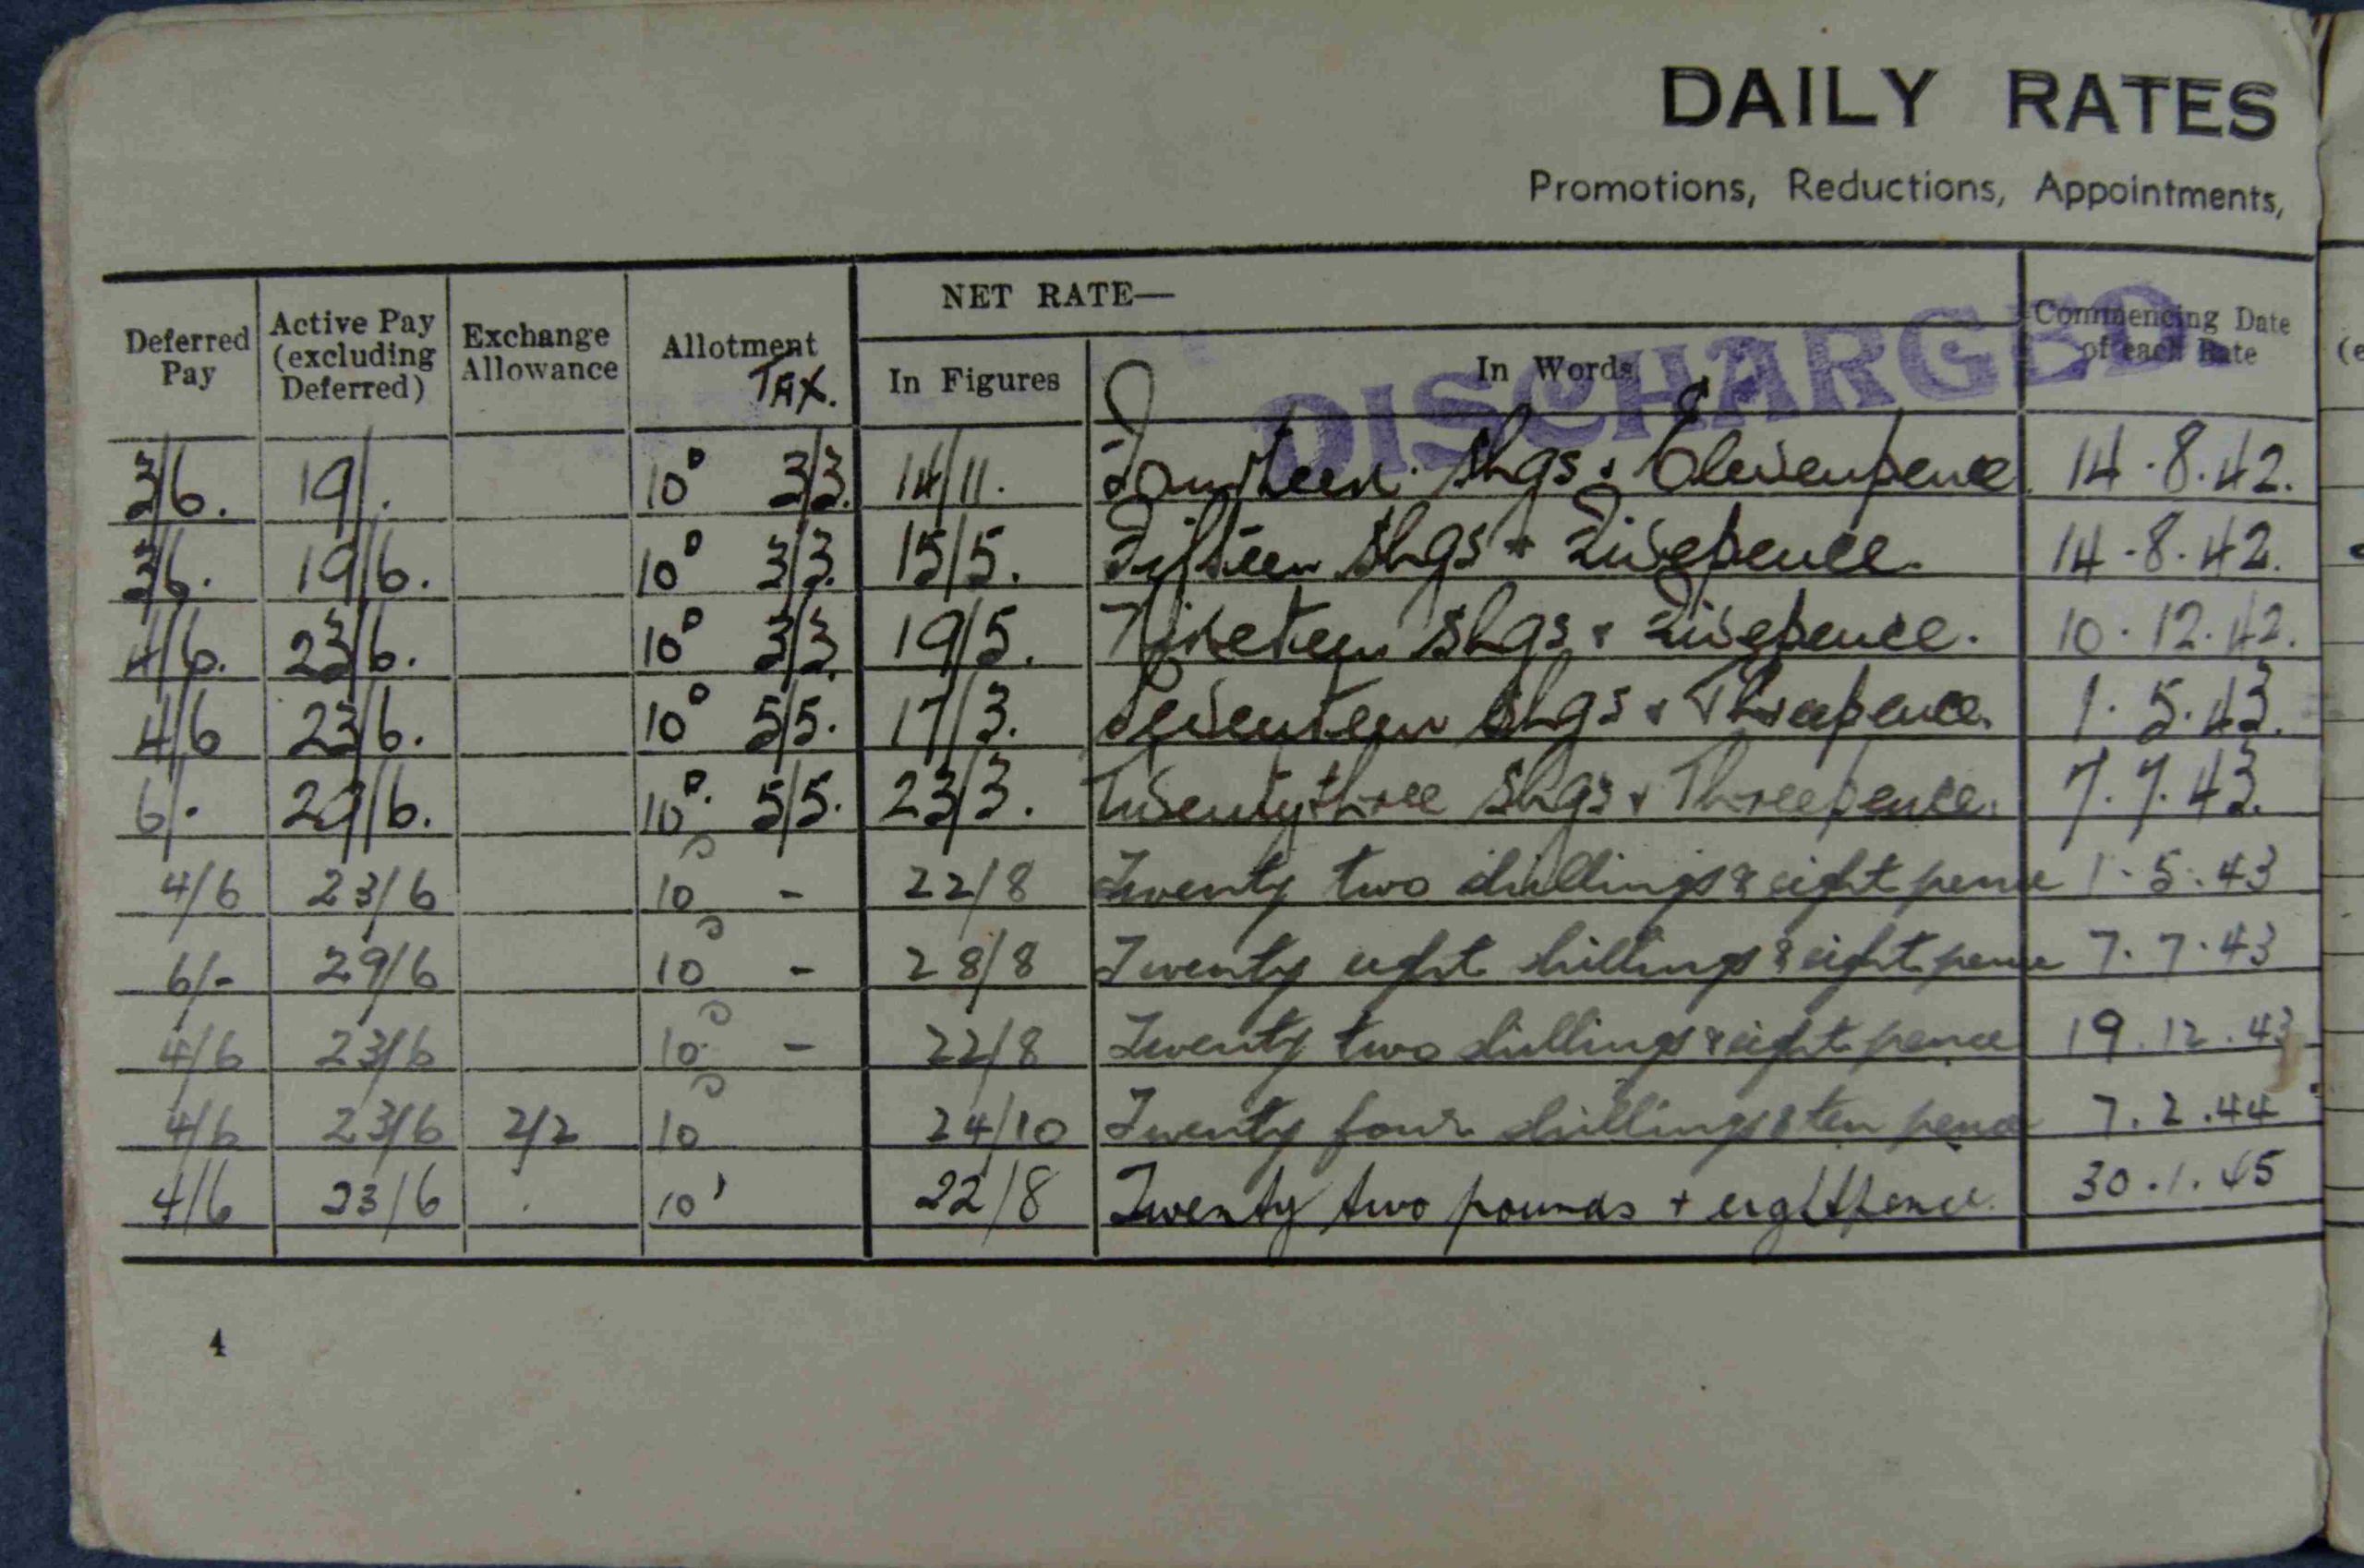 DAILY RATES
Promotions, Reductions, Appointments,
NET RATE—
Deferred Pay Active Pay (excluding Deferred) Exchange Allowance Allotment TAX. In Figures In Words Commencing Date of each Rate
DISCHARGED
3/6. 19/. 10D 3/3. 14/11. Fourteen Shgs & Elevenpence 14.8.42.
3/6. 19/6. 10D 3/3. 15/5. Fifteen Shgs + Fivepence. 14.8.42.
4/6. 23/6. 10D 3/3. 19/5. Nineteen Shgs & Fivepence. 10.12.42.
4/6 23/6. 10D 5/5. 17/3. Seventeen Shgs & Threepence. 1.5.43.
6/- 29/6. 10D. 5/5. 23/3. Twentythree Shgs & Threepence. 7.7.43.
4/6 23/6 10 - 22/8 Twenty two shillings & eight pence 1.5.43
6/- 29/6 10 - 28/8 Twenty eight shillings & eight pence 7.7.43
4/6 23/6 10 - 22/8 Twenty two shillings & eight pence 19.12.43
4/6 23/6 2/2 10 24/10 Twenty four shillings & ten pence 7.2.44
4/6 23/6 10' 22/8 Twenty two pounds + eightpence. 30.1.45
4
(e